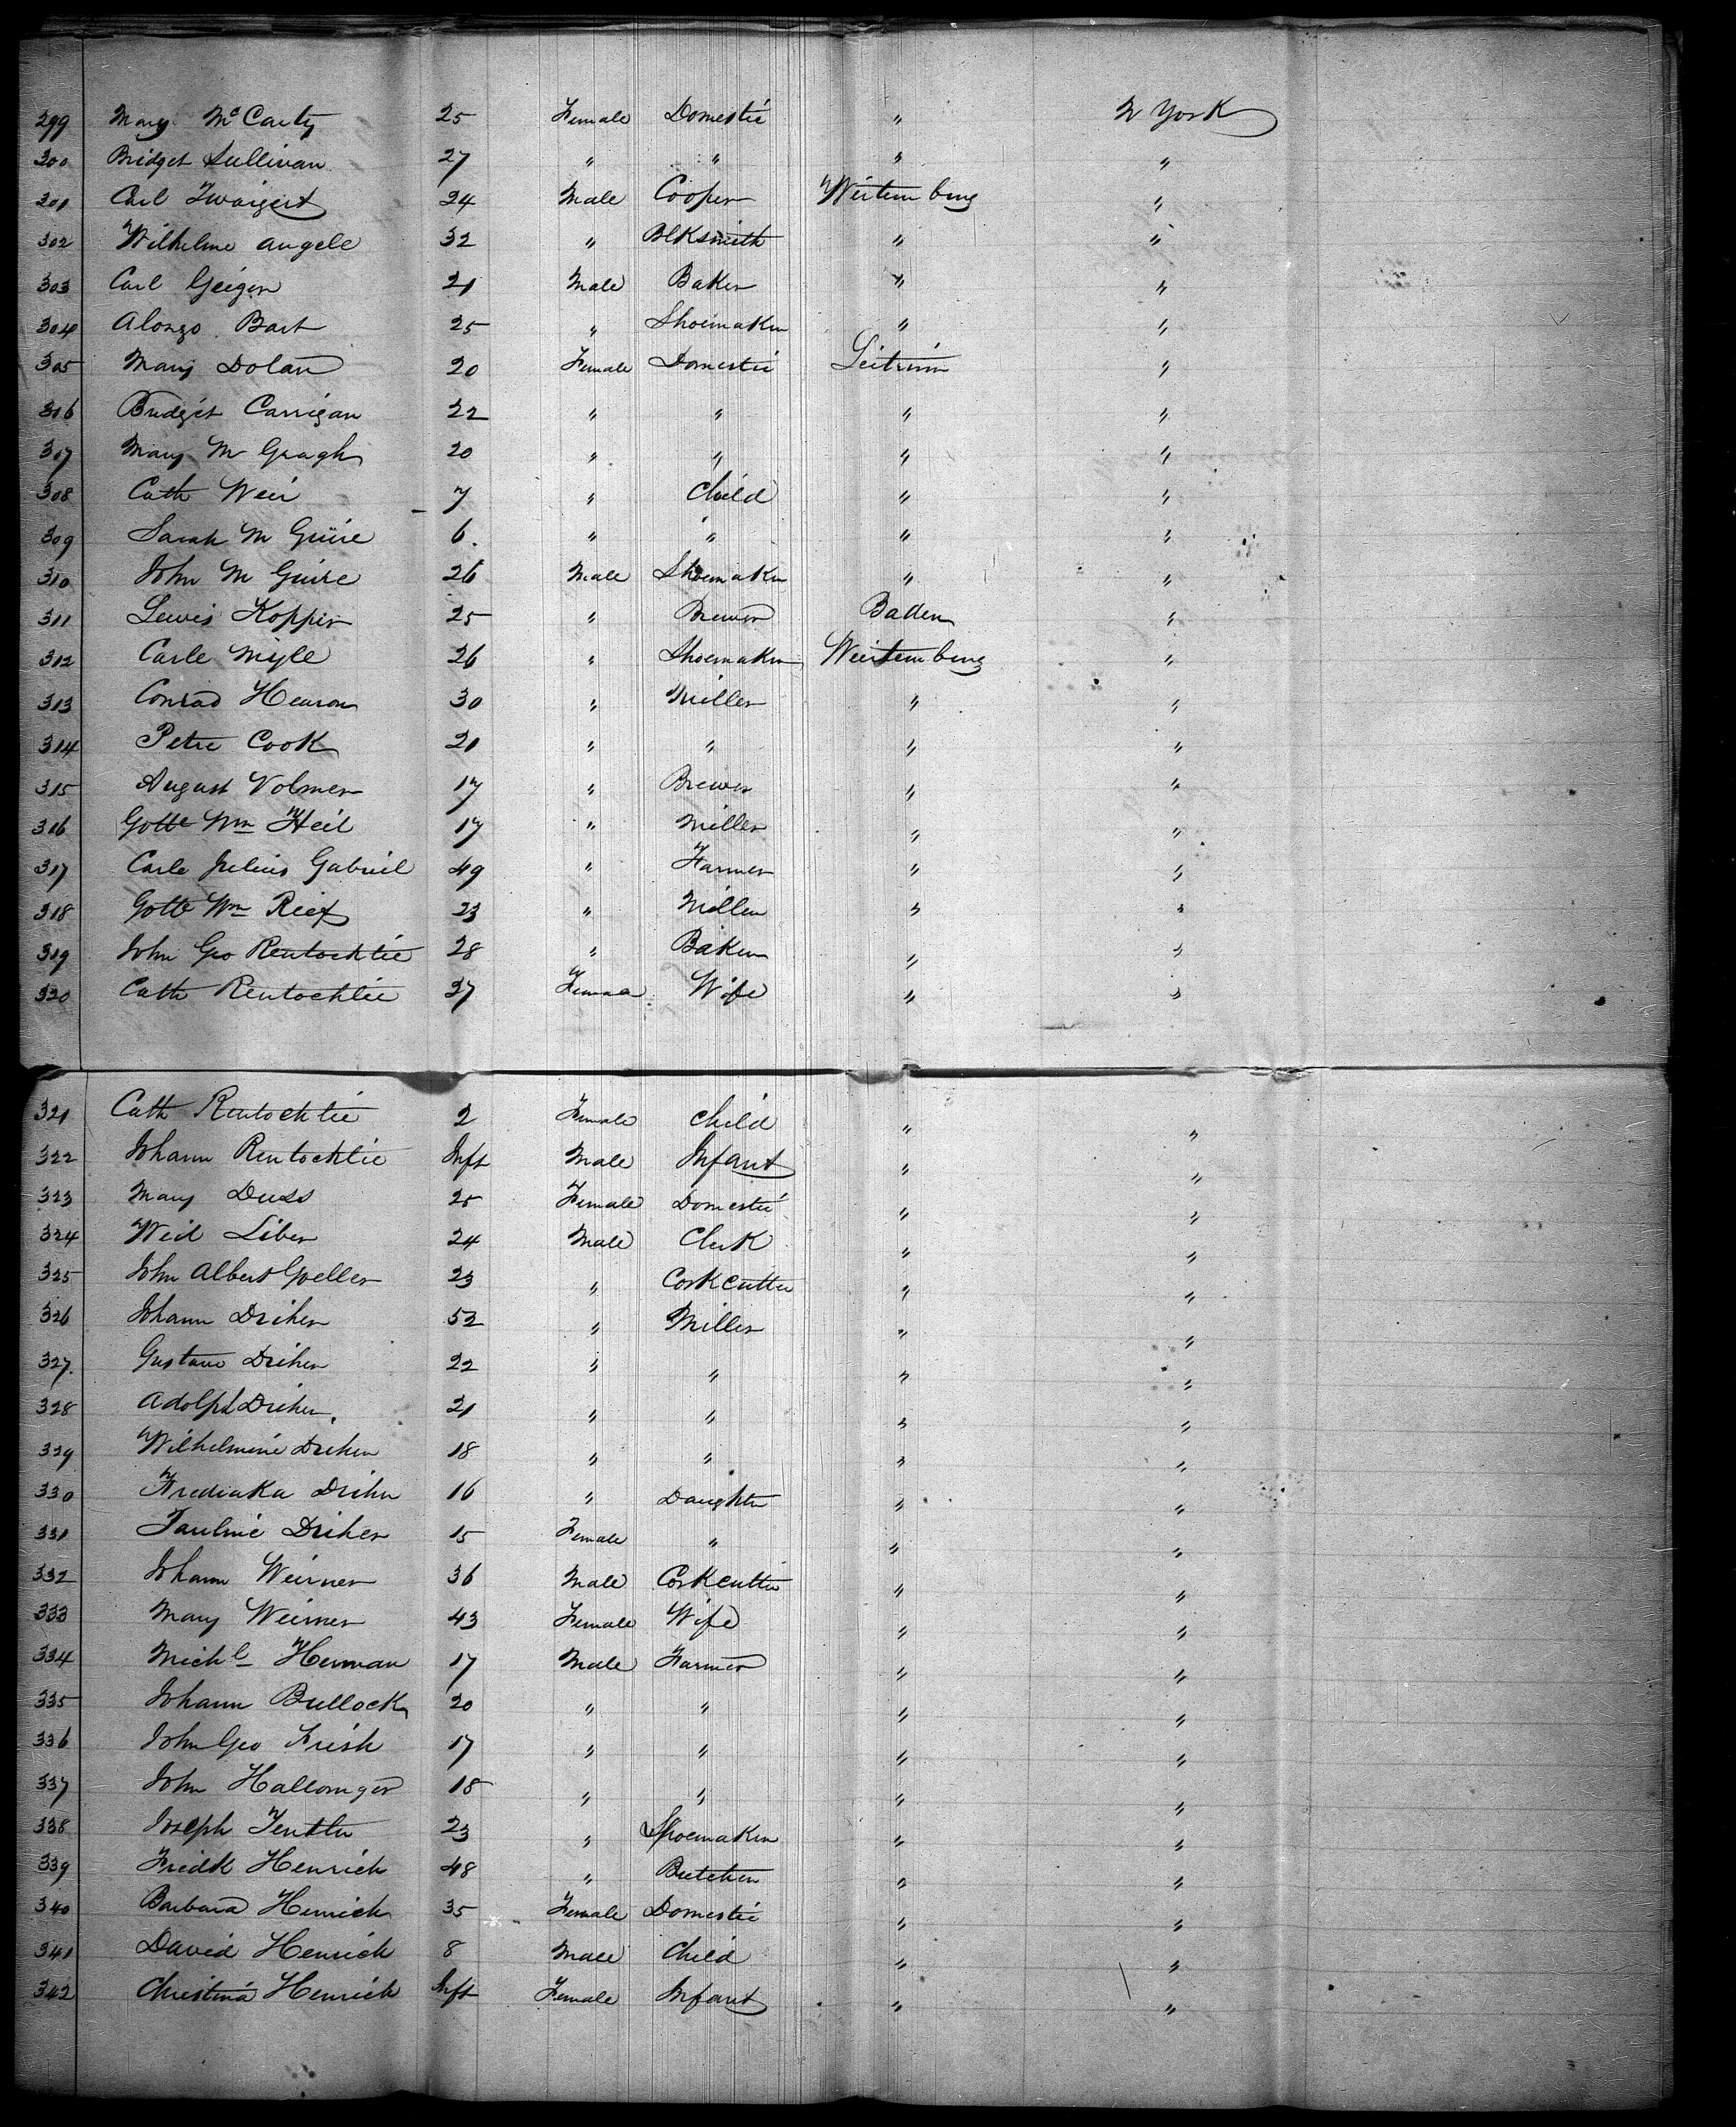 299 Mary McCarty 25 Female Domestic " N York
300 Bridget Sullivan 27 " " " "
301 Carl Zwaigert 24 Male Cooper Wirtemburg "
302 Wilhelme Angele 32 " Blksmith " "
303 Carl Geiger 21 Male Baker " "
304 Alonzo Bart 25 " Shoemaker " "
305 Mary Dolan 20 Female Domestic Leitrim "
306 Bridget Carrigan 22 " " " "
307 Mary M Gragh 20 " " " "
308 Cath Weir 7 " Child " "
309 Sarah M Guire 6. " " " "
310 John M Guire 26 Male Shoemaker " "
311 Lewis Kopper 25 " Brewer Baden "
312 Carle Myle 26 " Shoemaker Wirtemburg "
313 Conrad Hearon 30 " Miller " "
314 Peter Cook 21 " " " "
315 August Volmer 17 " Brewer " "
316 Gotte Wm Heil 17 " Miller " "
317 Carle Julius Gabriel 49 " Farmer " "
318 Gotte Wm Rief 23 " Miller " "
319 John Geo Rentochlie 28 " Baker " "
320 Cath Rentochlie 27 Femae Wife " "
321 Cath Rentochlie 2 Female Child " "
322 Johann Rentochlie Inft Male Infant " "
323 Mary Duss 25 Female Domestic " "
324 Weil Liber 24 Male Clerk " "
325 John Albert Goeller 23 " Corkcutter " "
326 Johann Driher 52 " Miller " "
327. Gustave Driher 22 " " " "
328 Adolph Driher 21 " " " "
329 Wilhelmine Driher 18 " " " "
330 Frediaka Driher 16 " Daughter " "
331 Pauline Driher 15 Female " " "
332 Johann Weirner 36 Male Corkcutter " "
333 Mary Weirner 43 Female Wife " "
334 Michl Herman 17 Male Farmer " "
335 Johann Bullock 20 " " " "
336 John Geo Frish 17 " " " "
337 John Hallomger 18 " " " "
338 Joseph 23 " Shoemaker " "
339 Fredk Henrich 48 " Butcher " "
340 Barbara Henrich 35 Female Domestic " "
341 David Henrich 8 Male Child " "
342 Christina Henrich Inft Female Infant " "